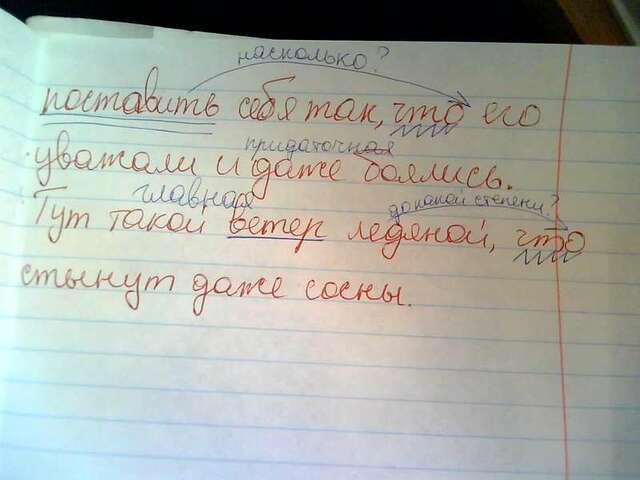 насколько?
поставить себя так, что его
придаточная
уважали и даже боялись.
главная до какой степени?
Тут такой ветер ледяной, что
стынут даже сосны.